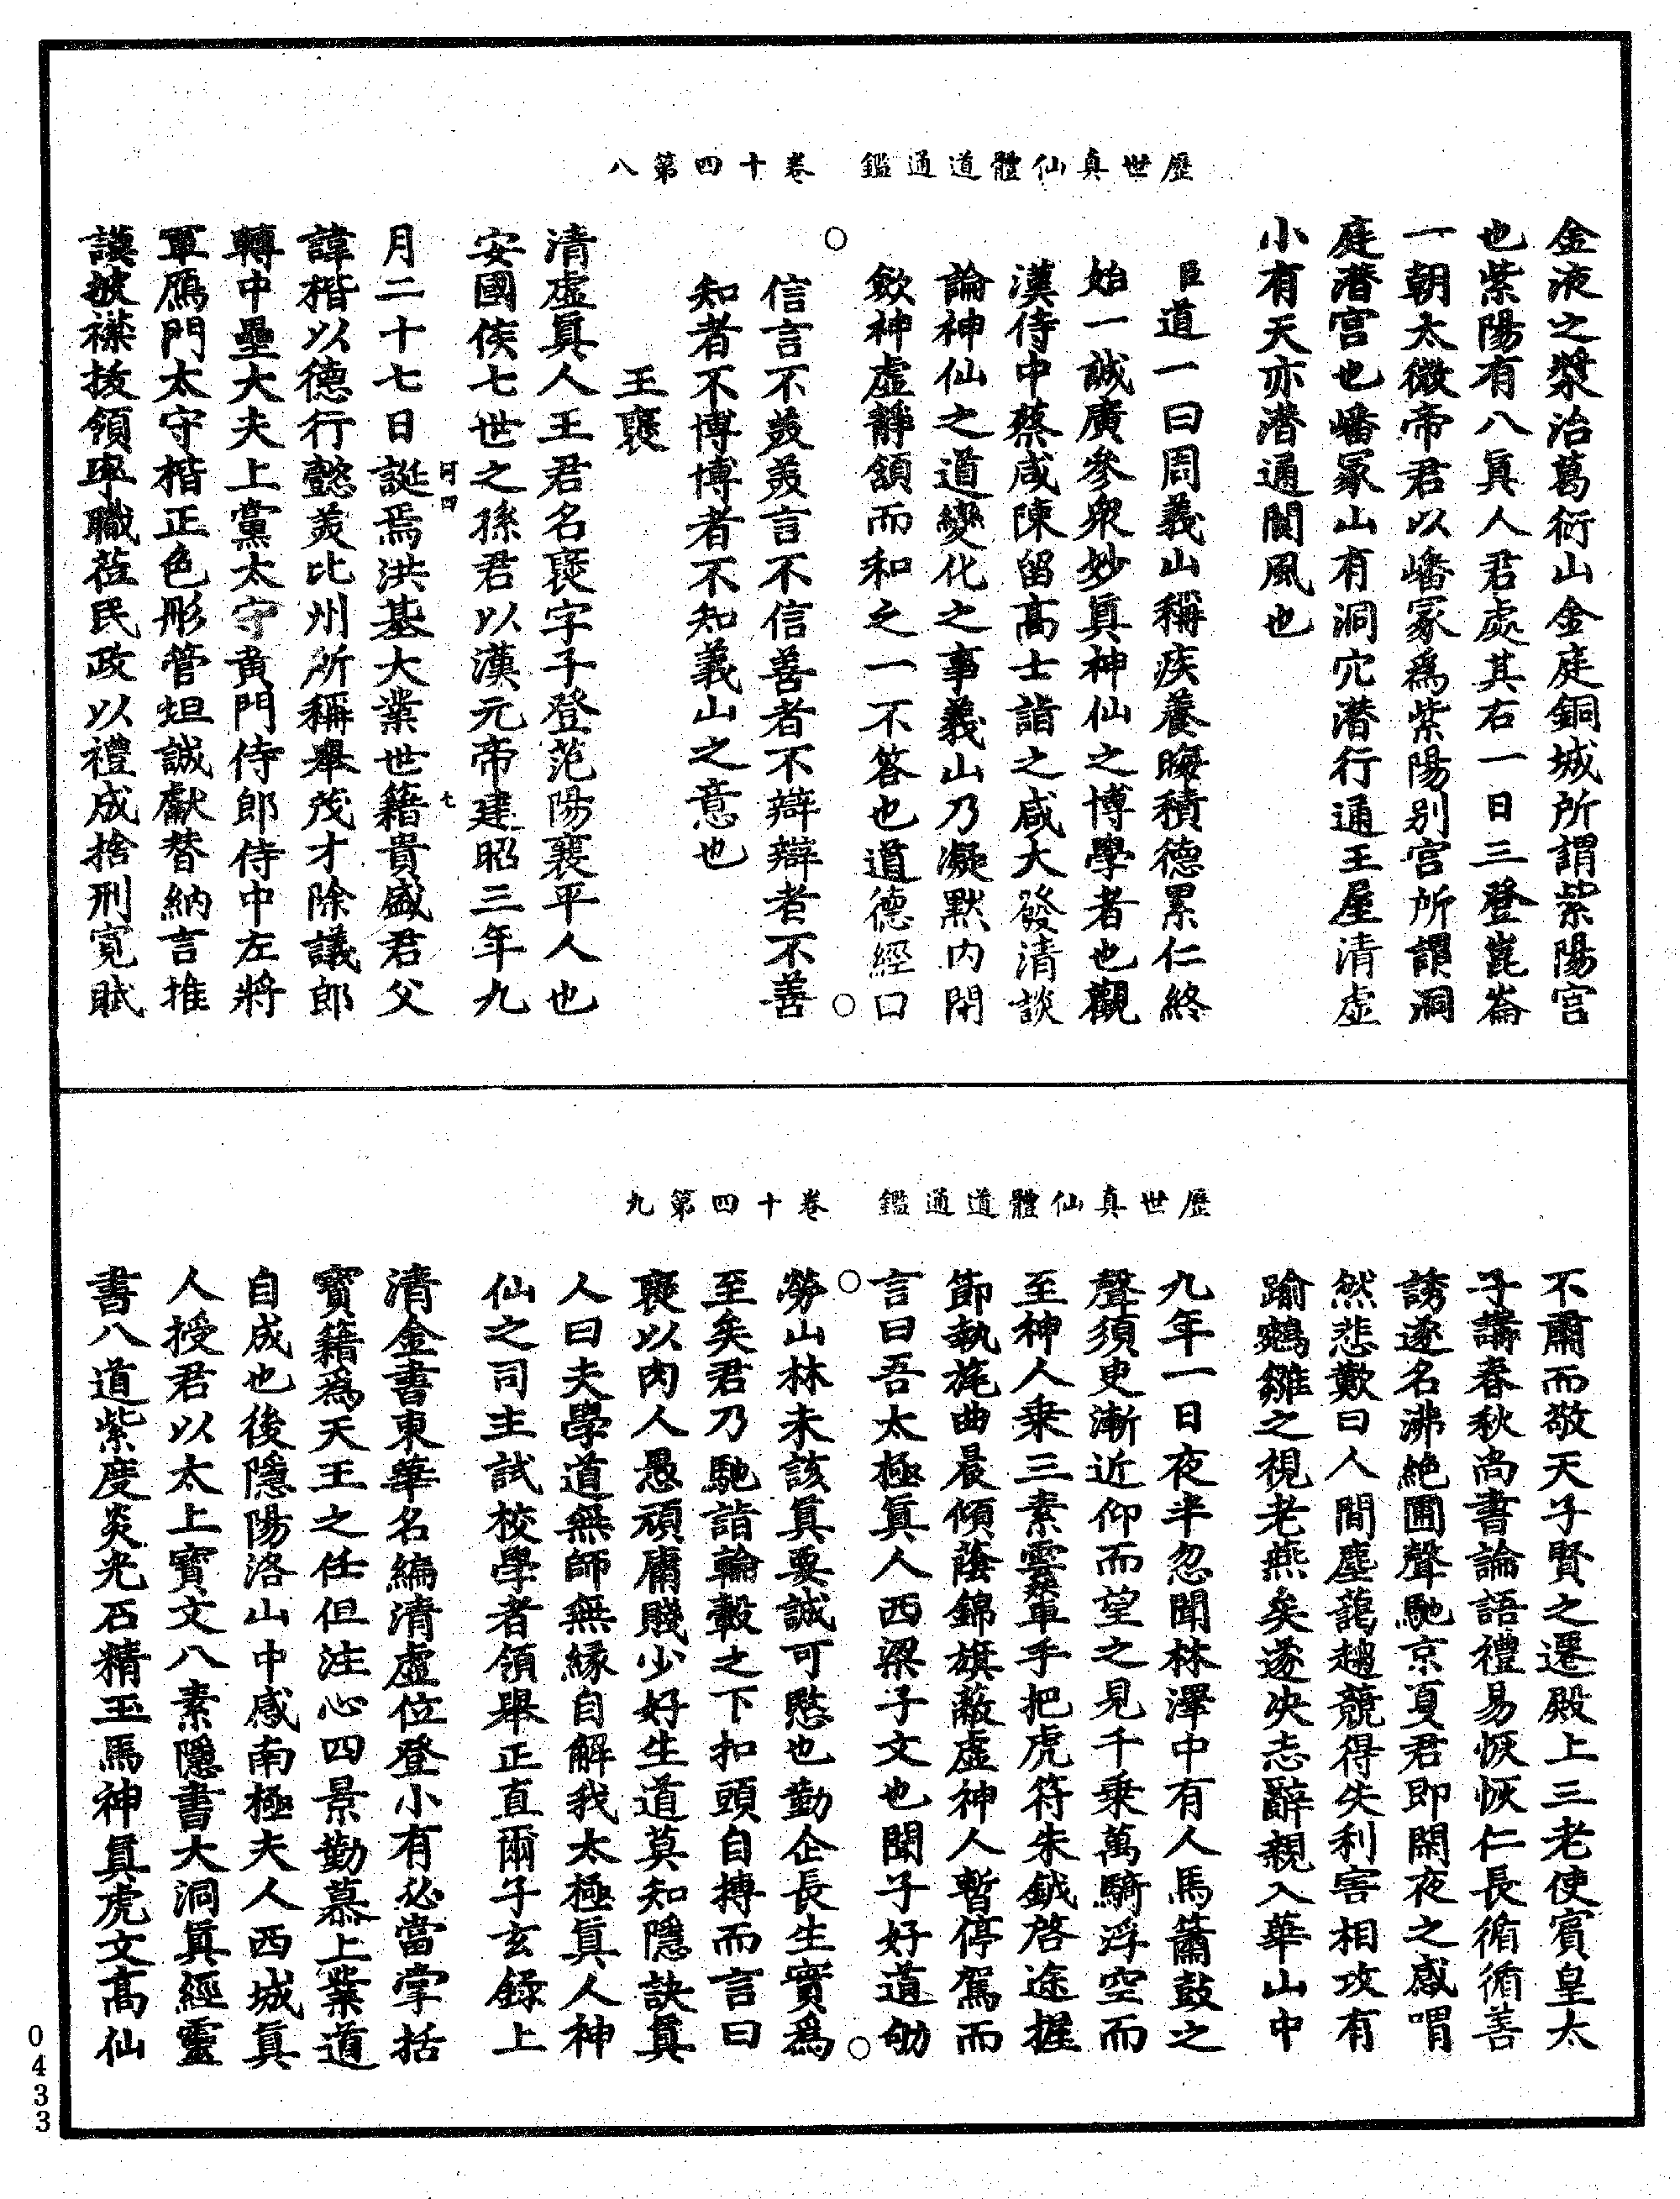 歷世真仙體道通鑑　卷十四第八
金液之漿治葛衍山金庭銅城所謂紫陽宮
也紫陽有八真人君處其右一日三登崑崙
一朝太微帝君以嶓冢爲紫陽別宮所謂洞
庭潜宮也嶓冢山有洞穴潜行通王屋清虛
小有天亦潜通閬風也
臣道一曰周義山稱疾養晦積德累仁終
始一誠廣參衆妙真神仙之博學者也觀
漢侍中蔡咸陳留高士詣之咸大發清談
論神仙之道變化之事義山乃凝默內閉
斂神虛靜頷而和之一不答也道德經曰
信言不美美言不信善者不辯辯者不善
知者不博博者不知義山之意也
王褒
清虛真人王君名褒字子登范陽襄平人也
安國侯七世之孫君以漢元帝建昭三年九
月二十七日誕焉洪基大業世籍貴盛君父
河四　七
諱楷以德行懿美比州所稱舉茂才除議郎
轉中壘大夫上黨太守黃門侍郎侍中左將
軍鴈門太守楷正色彤管坦誠獻替納言推
謨披襟抜領率職莅民政以禮成捨刑寬賦
歷世真仙體道通鑑　卷十四第九
不肅而敬天子賢之遷殿上三老使賓皇太
子講春秋尚書論語禮易恢恢仁長循循善
誘遂名沸絶圃聲馳京夏君即閑夜之感喟
然悲歎曰人間塵藹趨競得失利害相攻有
踰鵷雛之視老燕矣遂決志辭親入華山中
九年一日夜半忽聞林澤中有人馬簫鼓之
聲須臾漸近仰而望之見千乗萬騎浮空而
至神人乗三素雲輦車手把虎符朱鉞啓途握
節執旄曲晨傾蔭錦旗蔽虛神人暫停駕而
言曰吾太極真人西梁子文也聞子好道劬
勞山林未該真要誠可愍也勤企長生實爲
至矣君乃馳詣輪轂之下扣頭自搏而言曰
褒以肉人愚頑庸賤少好生道莫知隱訣真
人曰夫學道無師無緣自解我太極真人神
仙之司主試校學者領舉正直爾子玄錄上
清金書東華名編清虛位登小有必當掌括
寶籍為天王之任但注心四景勤慕上業道
自成也後隱陽洛山中感南極夫人西城真
人授君以太上寶文八素隱書大洞真經靈
書八道紫度炎光石精玉馬神真虎文高仙
0433